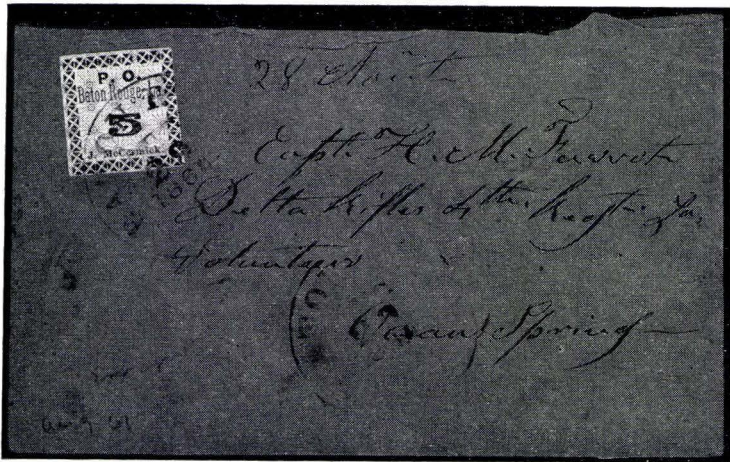 P. O.
Baton Rouge, La.
5
J. McCormick
28 Août
Capt. H. M. Favrot
Delta Rifles 4th Regt. La.
Volunteers
Ocean Springs
Aug 61